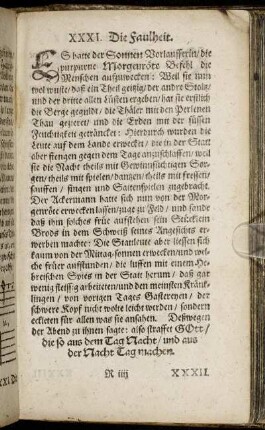 XXXI. Die Faulheit.
ES hatte der Sonnen Vorlaufferin/ die
purpurne Morgenröte Befehl die
Menschen aufzuwecken: Weil sie nun
wol wuste/ daß ein Theil geitzig/ der andre Stoltz/
und der dritte allen Lüsten ergeben/ hat sie erstlich
die Berge gegüldt/ die Thäler mit den Perlenen
Thau gezieret/ und die Erden mit der süssen
Feuchtigkeit getränket: Hierdurch wurden die
Leute auf dem Lande erwecket/ die in der Statt
aber fiengen gegen dem Tage an zuschlaffen/ weil
sie die Nacht theils mit Gewinnsüchtigen Sor-
gen/ theils mit spielen/ dantzen/ theils mit fressen/
sauffen/ singen und Saitenspielen zugebracht.
Der Ackermann hatte sich nun von der Mor-
genröte erwecken lassen/ zuge zu Feld/ und fande
daß ihm solches früe aufstehen sein Stücklein
Brods in dem Schweiß seines Angesichts er-
werben machte: Die Stattleute aber liessen sich
kaum von der Mittag-sonnen erwecken/ und wel-
che früer aufstunden/ die luffen mit einem He-
breischen Spies in der Statt herum/ daß gar
wenig fleissig arbeiteten/ und den meinsten Kränk-
lingen/ von vorigen Tages Gastereyen/ der
schwere Kopf nicht wolte leicht werden/ sondern
eckleten für allen was sie ansahen. Deßwegen
der Abend zu ihnen sagte: also straffet GOtt/
die so aus dem Tag Nacht/ und aus
der Nacht Tag machen.
R iiij XXXII.